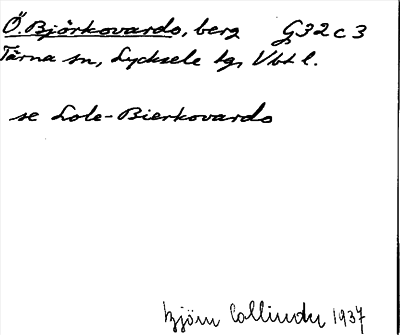 Ö. Björkovardo, berg G32c3
Tärna sn, Lycksele lg, Vbt l.
se Lole-Bierkovardo
Björn Collinder 1937